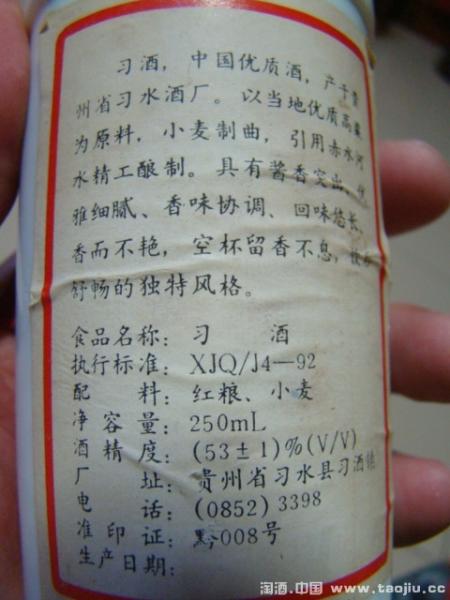 习酒，中国优质酒，产于贵
州省习水酒厂。以当地优质高粱
为原料，小麦制曲，引用赤水河
水精工酿制。具有酱香突出、优
雅细腻、香味协调、回味悠长、
香而不艳，空杯留香不息，
舒畅的独特风格。
食品名称：习 酒
执行标准：XJQ/J4—92
配 料：红粮、小麦
净 容 量：250mL
酒 精 度：(53±1)%(V/V)
厂 址：贵州省习水县习酒镇
电 话：(0852)3398
准 印 证：黔008号
生产日期：
淘酒.中国 www.taojiu.cc